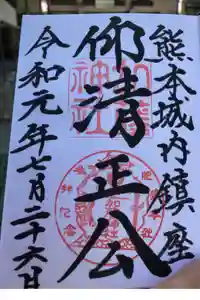 熊本城内鎮座
仰清正公
加藤
神社
令和元年七月二十六日